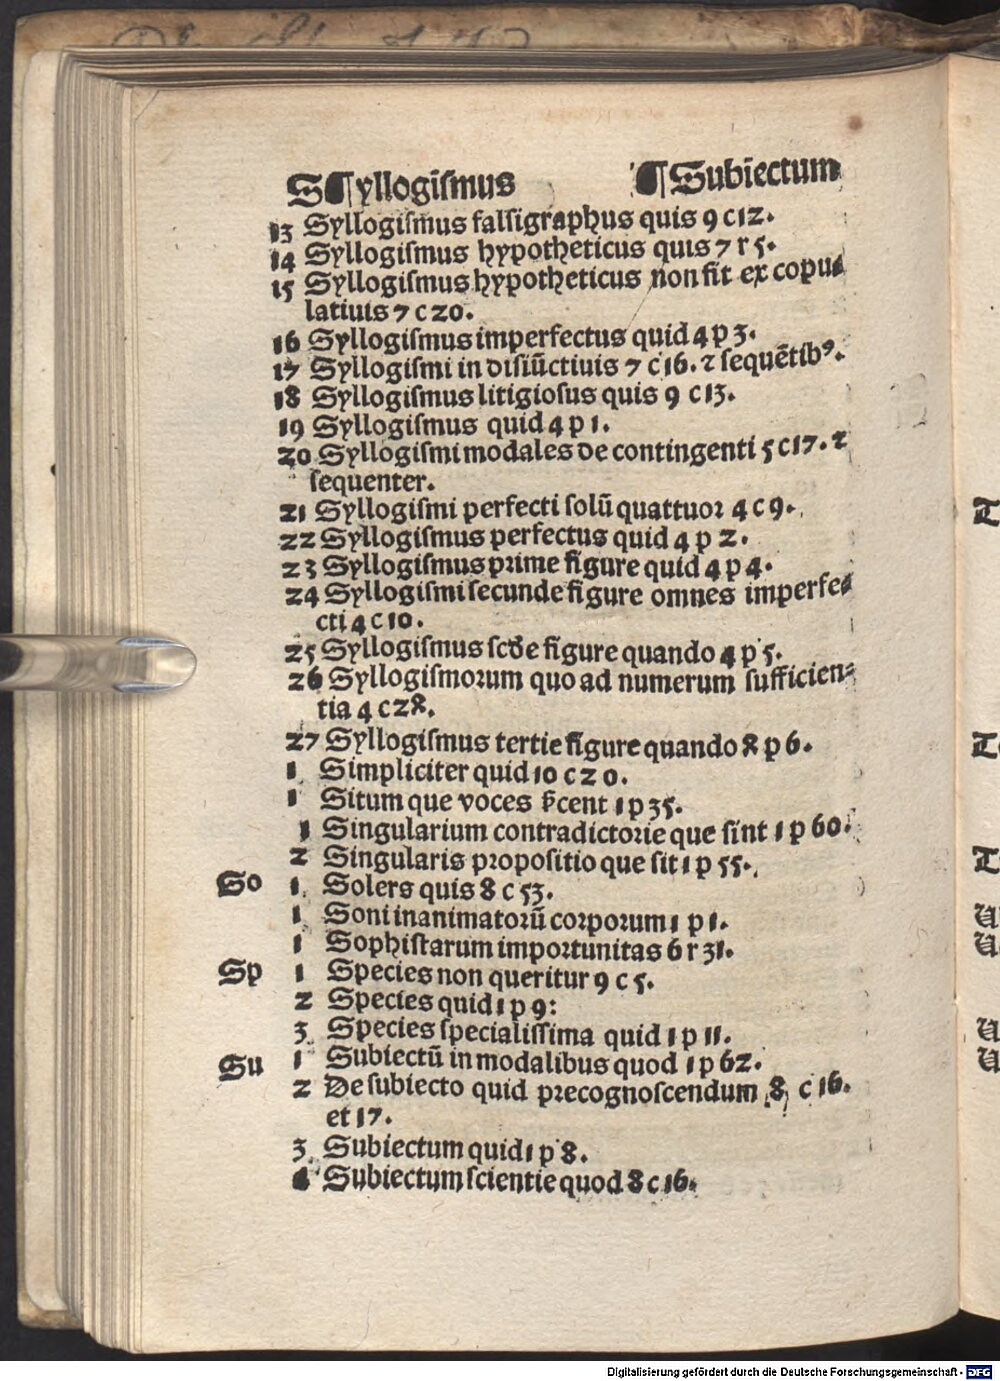 S¶yllogiſmus ¶Subiectum
13 Syllogiſmus falſigraphus quis 9 c 12.
14 Syllogiſmus hypotheticus quis 7 r 5.
15 Syllogiſmus hypotheticus non fit ex copu⸗
latiuis 7 c 20.
16 Syllogiſmus imperfectus quid 4 p 3.
17 Syllogiſmi in diſiūctiuis 7 c 16. ⁊ ſequētibꝰ.
18 Syllogiſmus litigioſus quis 9 c 13.
19 Syllogiſmus quid 4 p 1.
20 Syllogiſmi modales de contingenti 5 c 17. ⁊
ſequenter.
21 Syllogiſmi perfecti ſolū quattuor 4 c 9.
22 Syllogiſmus perfectus quid 4 p 2.
23 Syllogiſmus prime figure quid 4 p 4.
24 Syllogiſmi ſecunde figure omnes imperfe⸗
cti 4 c 10.
25 Syllogiſmus ſcđe figure quando 4 p 5.
26 Syllogiſmorum quo ad numerum ſufficien⸗
tia 4 c 28.
27 Syllogiſmus tertie figure quando 8 p 6.
1 Simpliciter quid 10 c 20.
1 Situm que voces cent 1 p 35.
1 Singularium contradictorie que ſint 1 p 60.
2 Singularis propoſitio que ſit 1 p 55.
So 1 Solers quis 8 c 53.
1 Soni inanimatorū corporum 1 p 1.
1 Sophiſtarum importunitas 6 r 31.
Sp 1 Species non queritur 9 c 5.
2 Species quid 1 p 9:
3 Species ſpecialiſſima quid 1 p 11.
Su 1 Subiectū in modalibus quod 1 p 62.
2 De ſubiecto quid precognoſcendum 8 c 16.
et 17.
3 Subiectum quid 1 p 8.
Subiectum ſcientie quod 8 c 16.
T
To
T
U
U
U
U
Digitalisierung gefördert durch die Deutsche Forschungsgemeinschaft - DFG